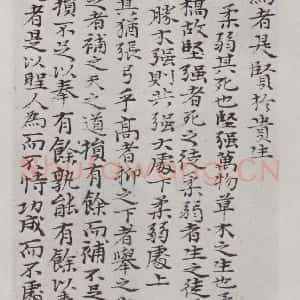 為者是賢於貴生
柔弱其死也堅强萬物草木之生也
槁故堅强者死之徒柔弱者生之徒
勝木强則共强大處下柔弱處上
其猶張弓乎高者抑之下者舉之
足者補之天之道損有餘而補不足
損不足以奉有餘孰能有餘以奉
者是以聖人為而不恃功成而不處
Shufawang.CN